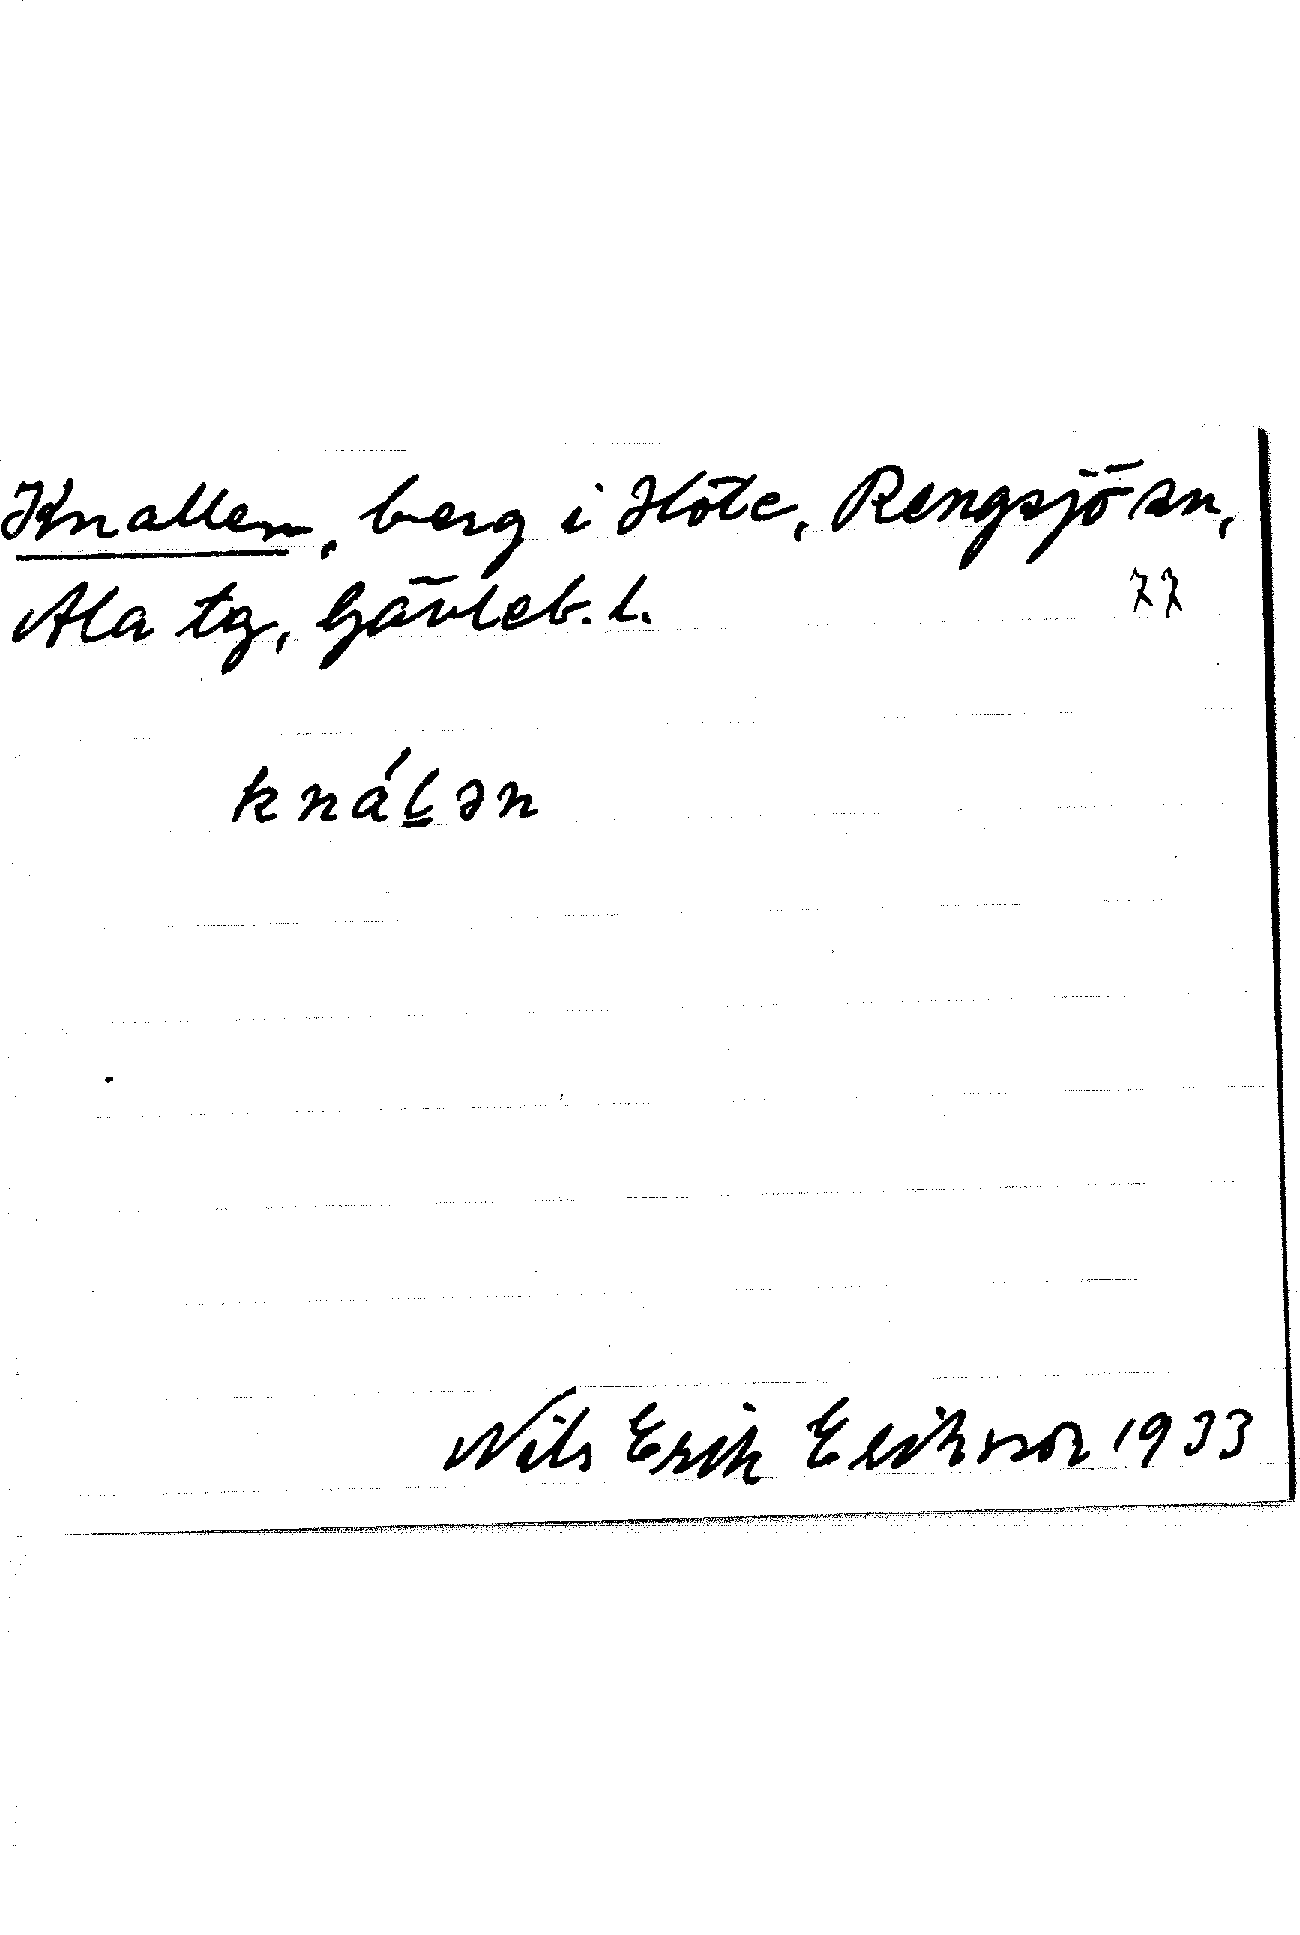 Knallen, berg i Höle, Rengsjö sn,
Ala tg, Gävleb. l.
77
knáḻən
Nils Erik Eriksson 1933